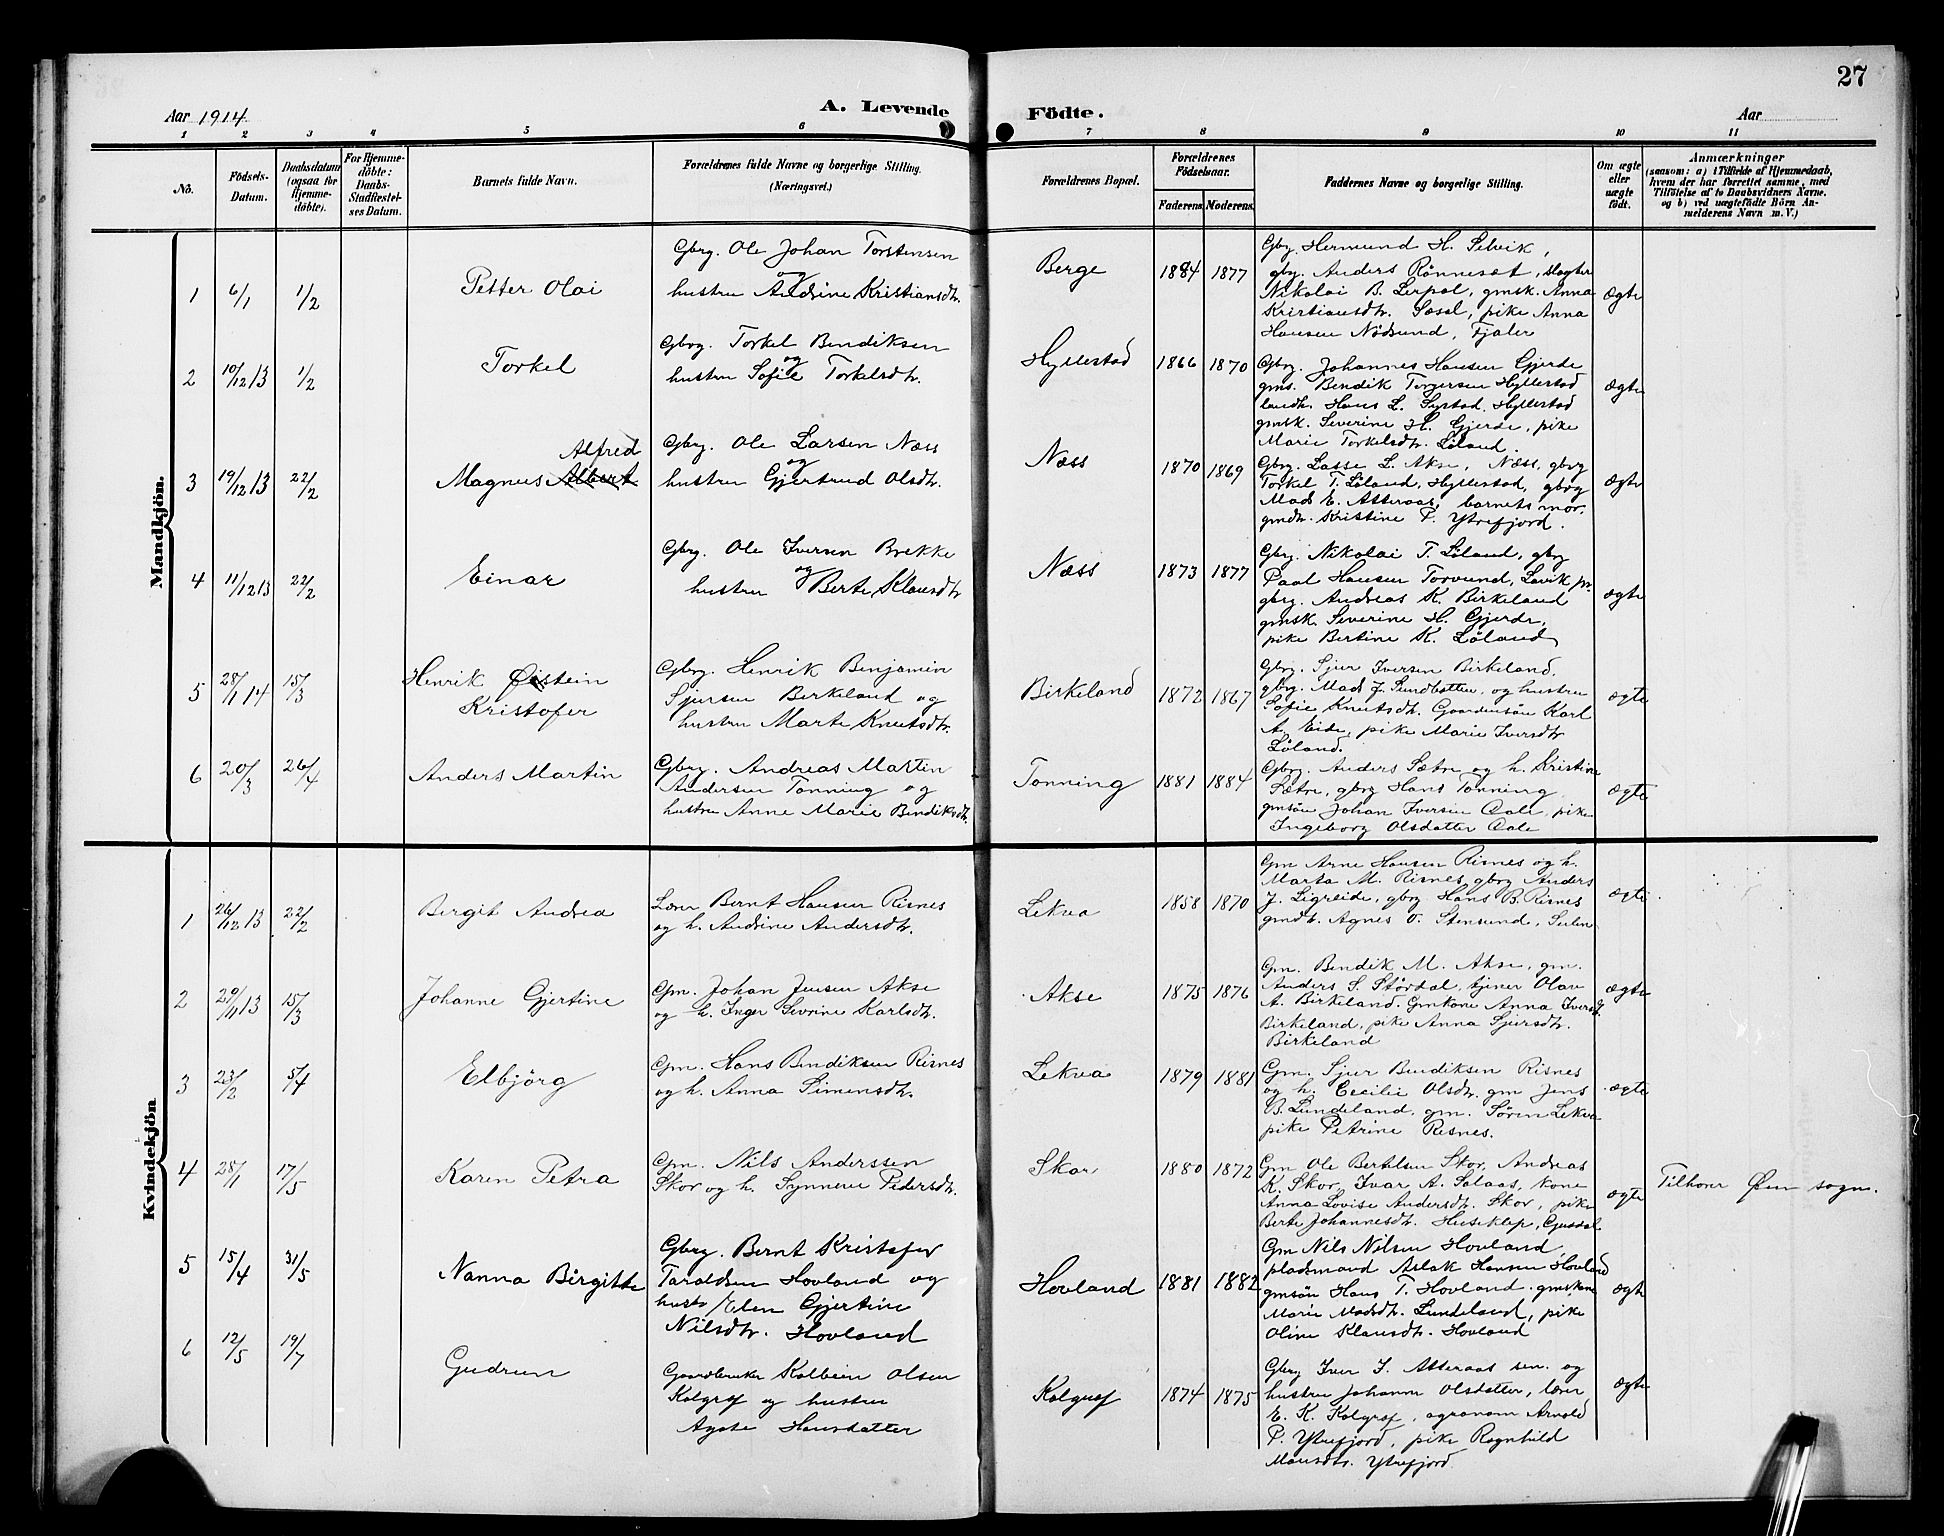 27
Aar 1914
A. Levende
Födte.
Aar
1 2 3 4 5 6 7 8 9 10 11
No.
Födsels-Datum.
Daabsdatum (ogsaa for Hjemme-döbte).
For Hjemme-döbte: Daabs-Stadfæstel-ses Datum.
Barnets fulde Navn.
Forældrenes fulde Navne og borgerlige Stilling. (Næringsvei.)
Forældrenes Bopæl.
Forældrenes Födselsaar.
Faderens. Moderens.
Faddernes Navne og borgerlige Stilling.
Om ægte eller uægte födt.
Anmærkninger
(saasom: a) i Tilfælde af Hjemmedaab,
hvem der har forrettet samme, med
Tilföielse af to Daabsvidners Navne.
og b) ved uægtefödte Börn An-
melderens Navn m. V.)
Mandkjön.
1 6/1 1/2 Petter Olai
Gbrg. Ole Johan Torstensen
og
hustru Andrine Kristiansdtr.
Berge 1884 1877
Gbrg. Hermund H. Selvik,
gbrg. Anders Rönneset, slagter
Nikolai B. Lerpol, gmsk. Anna
Kristiansdtr. Sosol, pike Anna
Hansen Nödsund, Fjaler
ægte
2 10/12 13 1/2 Torkel
Gbrg. Torkel Bendiksen
og
hustru Sofie Torkelsdtr.
Hyllestad 1866 1870
Gbrg. Johannes Hansen Gjerde
gms. Bendik Torgersen Hyllestad
landh. Hans L. Systad, Hyllestad
gmsk. Severine H. Gjerde, pike
Marie Torkelsdtr. Löland.
ægte
3 19/12 13 22/2 Alfred
Magnus Albert
Gbrg. Ole Larsen Næss
og
hustru Gjertrud Olsdtr.
Næss 1870 1869
Gbrg. Lasse L. Akse, Næss, gbrg
Torkel T. Löland, Hyllestad, gbrg
Mads E. Atteraas, barnets mor,
gmdtr. Kristine P. Ytrefjord.
ægte
4 11/12 13 22/2 Einar
Gbrg. Ole Iversen Brekke
og
hustru Berte Klausdtr
Næss 1873 1877
Gbrg. Nikolai T. Löland, gbrg
Paal Hansen Torvund, Lavik pr.
gbrg. Andreas K. Birkeland
gmsk. Severine H. Gjerde,
pike Bertine K. Löland
ægte
5 28/1 14 15/3 Henrik Øistein
Kristofer
Gbrg. Henrik Benjamin
Sjursen Birkeland og
hustru Marte Knutsdtr.
Birkeland 1872 1867
Gbrg. Sjur Iversen Birkeland,
gbrg. Mads J. Sundbotten, og hustru
Sofie Knutsdtr. Gaardmsön Karl
A. Eide, pike Marie Iversdtr
Löland.
ægte
6 20/3 26/4 Anders Martin
Gbrg. Andreas Martin
Andersen Tonning og
hustru Anne Marie Bendiksdtr.
Tonning 1881 1884
Gbrg. Anders Sætre og h. Kristine
Sætre, gbrg Hans Tonning
gmsön Johan Iversen Oale, pike
Ingeborg Olsdatter Oale
ægte
Kvindekjön
1 26/12 13 22/2 Bergit Andrea
Lærer Bernt Hansen Risnes
og h. Andrine Andersdtr.
Lekva 1858 1870
Gm Arne Hansen Risnes og h.
Marta M. Risnes, gbrg Anders
J. Ligreide, gbrg Hans B. Risnes
gmdtr. Agnes O. Stensund, Sulen
ægte
2 29/11 13 15/3 Johanne Gjertine
Gm. Johan Jensen Akse
og h. Inger Sevrine Karlsdtr.
Akse 1875 1876
Gm. Bendik M. Akse, gm.
Anders S. Stördal, tjener Olav
A. Birkeland. Gmkone Anna Iversd.
Birkeland, pike Anna Sjursdtr.
Birkeland
ægte
3 23/2 5/4 Elbjörg
Gm. Hans Bendiksen Risnes
og h. Anna Simensdtr.
Lekva 1879 1881
Gm. Sjur Bendiksen Risnes
og h. Cecilie Olsdtr. gm Jens
B. Lundeland, gm. Sören Lekva
pike Petrine Risnes.
ægte
4 28/1 17/5 Karen Petra
Gm. Nils Anderssen
Skor og h. Synneve Pedersdtr.
Skor 1880 1872
Gm Ole Bertilsen Skor, Andreas
K. Skor, Ivar A. Solaas, kone
Anna Lovise Andersdtr. Skor, pike
Berte Johannesdtr. Huseklep, Guddal
ægte
Tilhører Øen sogn.
5 15/4 31/5 Nanna Birgitte
Gbrg. Bernt Kristofer
Taraldsen Hovland og
hustr Elen Gjertine
Nilsdtr. Hovland
Hovland 1881 1882
Gm Nils Nilsen Hovland,
pladsmand Aslak Hansen Hovland
gmsön Hans T. Hovland, gmskone
Marie Madsdtr. Lundeland, pike
Oline Klausdtr. Hovland
ægte
6 12/5 19/7 Gudrun
Gaardbruker Kolbein Olsen
Kolgrof og hustru
Agate Hansdatter
Kolgrof 1874 1875
Gbrg Iver I. Atteraas sen. og
hustru Johanne Olsdatter, lærer
E. K. Kolgrof, agronom Arnold
P. Ytrefjord, pike Ragnhild
Monsdtr. Ytrefjord.
ægte